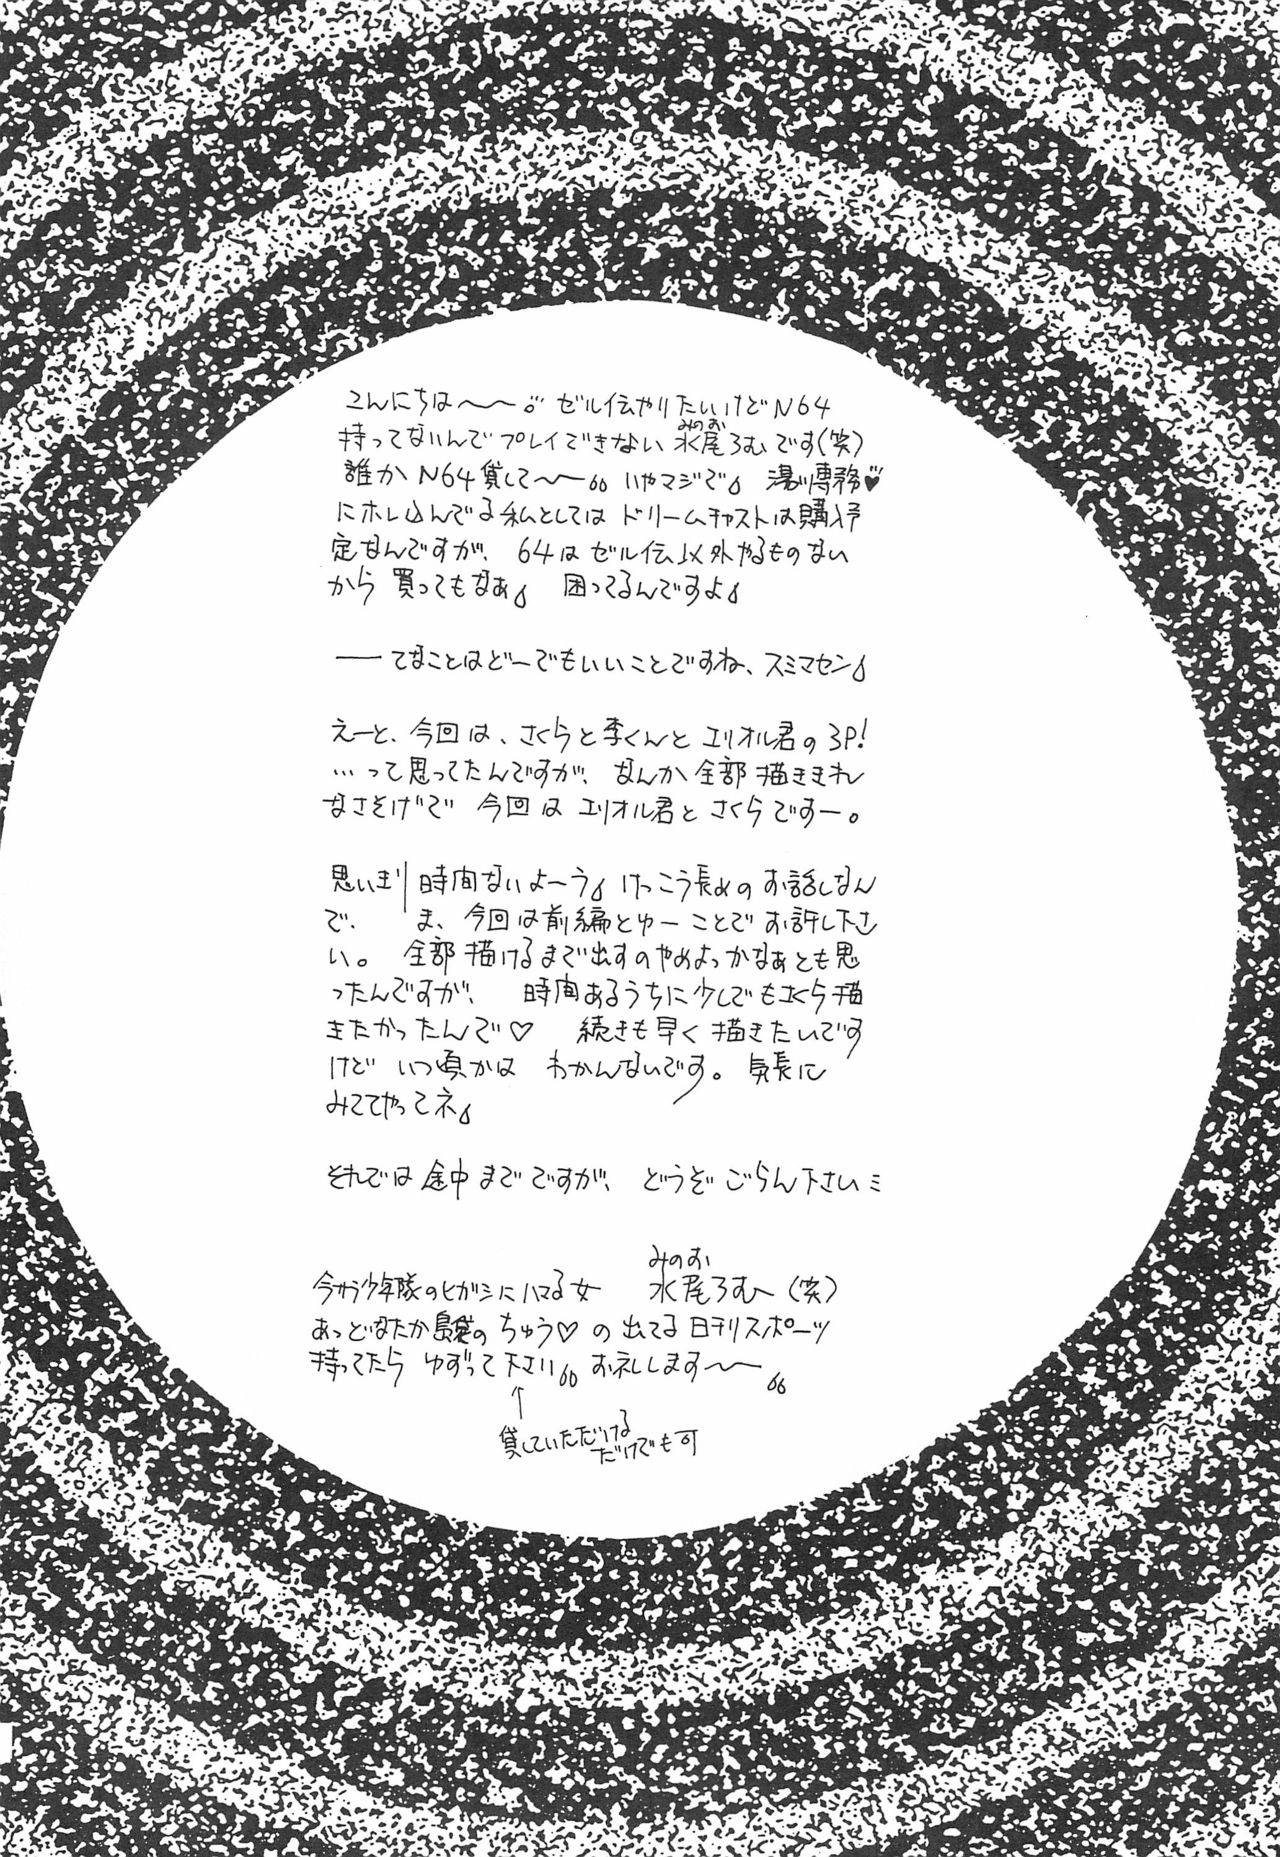 こんにちは〜〜。ゼル伝やりたいけどN64
みのお
持ってないんでプレイできない水尾ろむです(笑)
誰かN64貸して〜〜。いやマジで 湯川専務♥
にホレ込んでる私としてはドリームキャストは購入予
定なんですが、64はゼル伝以外やるものない
から買ってもなぁ 困ってるんですよ
――てなことはどーでもいいことですね、スミマセン
えーと、今回は、さくらと李くんとエリオル君の3P!
…って思ってたんですが、なんか全部描ききれ
なさそげで 今回はエリオル君とさくらですー。
思いきり時間ないよーう けっこう長めのお話しなん
で、 ま、今回は前編とゆーことでお許し下さ
い。 全部描けるまで出すのやめよっかなぁとも思
ったんですが、 時間あるうちに少しでもさくら描
きたかったんで♡ 続きも早く描きたいです
けど いつ頃かは わかんないです。 気長に
みててやってネ
それでは途中までですが、 どうぞごらん下さい
みのお
今から少年隊のヒガシにハマる女 水尾ろむ(笑)
あっどなたか島袋のちゅう♡の出てる日刊スポーツ
持ってたら ゆずって下さい お礼します〜〜
↑
貸していただける
だけでも可